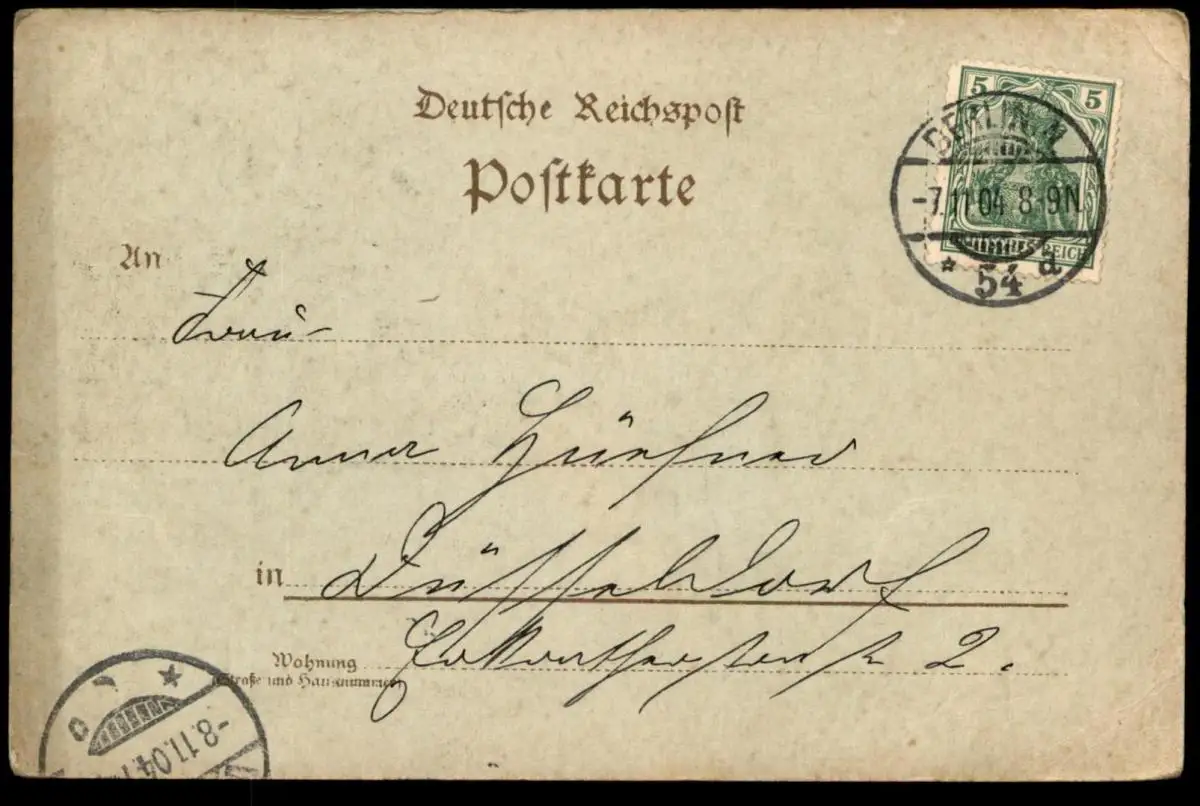 Deutsche Reichspost
Postkarte
5 5
BERLIN N
-7.11.04 8-9N.
* 54 a
DEUTSCHES REICH
An
Frau
Anna
in Düsseldorf
Wohnung 2.
(Straße und Hausnummer)
-8.11.04